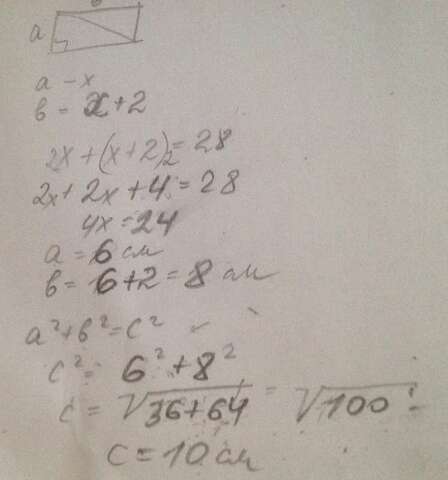 a
a - x
в = x+2
2x+(x+2)2=28
2x+2x+4=28
4x=24
a=6 см
в=6+2=8 см
a²+в²=c²
c²= 6²+8²
c = √36+64 = √100 =
c=10 см